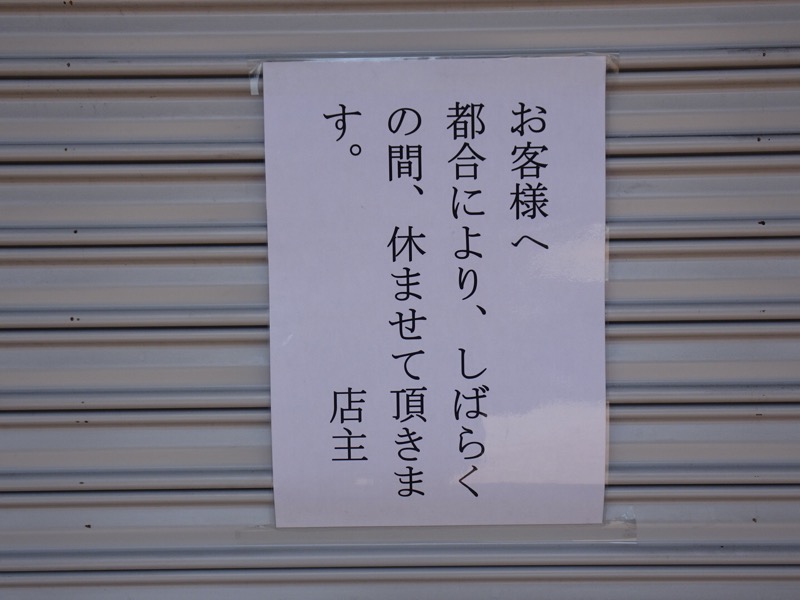 お客様へ
都合により、しばらく
の間、休ませて頂きま
す。
店主